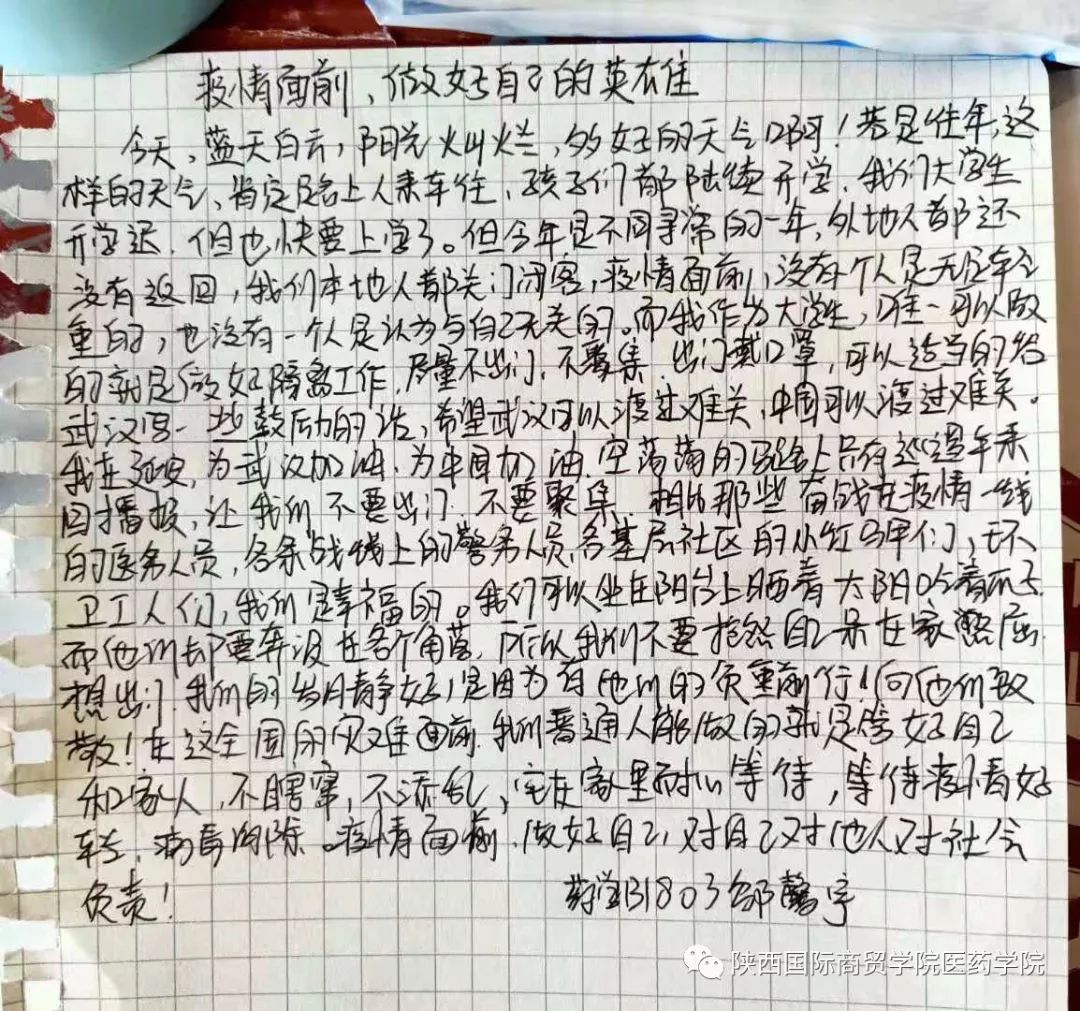 疫情面前、做好自己的英雄
今天，蓝天白云，阳光灿烂，多好的天气啊！若是往年，这
样的天气，肯定路上人来车往，孩子们都陆续开学，我们大学生
开学迟，但也快要上学了。但今年是不同寻常的一年，外地人都还
没有返回，我们本地人都关门闭客，疫情面前，没有个人是无足轻
重的，也没有一个人是认为与自己无关的。而我作为大学生，唯一可以做
的就是做好隔离工作，尽量不出门，不聚集，出门戴口罩，可以适当的给
武汉写一些鼓励的话，希望武汉可以渡过难关，中国可以渡过难关。
我在延安，为武汉加油，为中国加油，空荡荡的马路上只有巡逻车来
回播报，让我们不要出门，不要聚集，相比那些奋战在疫情一线
的医务人员，各条战线上的警务人员，各基层社区的小红马甲们，环
卫工人们，我们是幸福的。我们可以坐在阳台上晒着太阳吃着瓜子，
而他们却要奔波在各个角落，所以我们不要抱怨自己呆在家憋屈
想出门，我们的岁月静好，是因为有他们的负重前行！向他们致
敬！在这全国的灾难面前，我们普通人能做的就是管好自己
和家人，不瞎窜，不添乱，宅在家里耐心等待，等待疫情好
转，病毒消除。疫情面前，做好自己，对自己对他人对社会
负责！
药学B1803 邹馨宇
陕西国际商贸学院医药学院